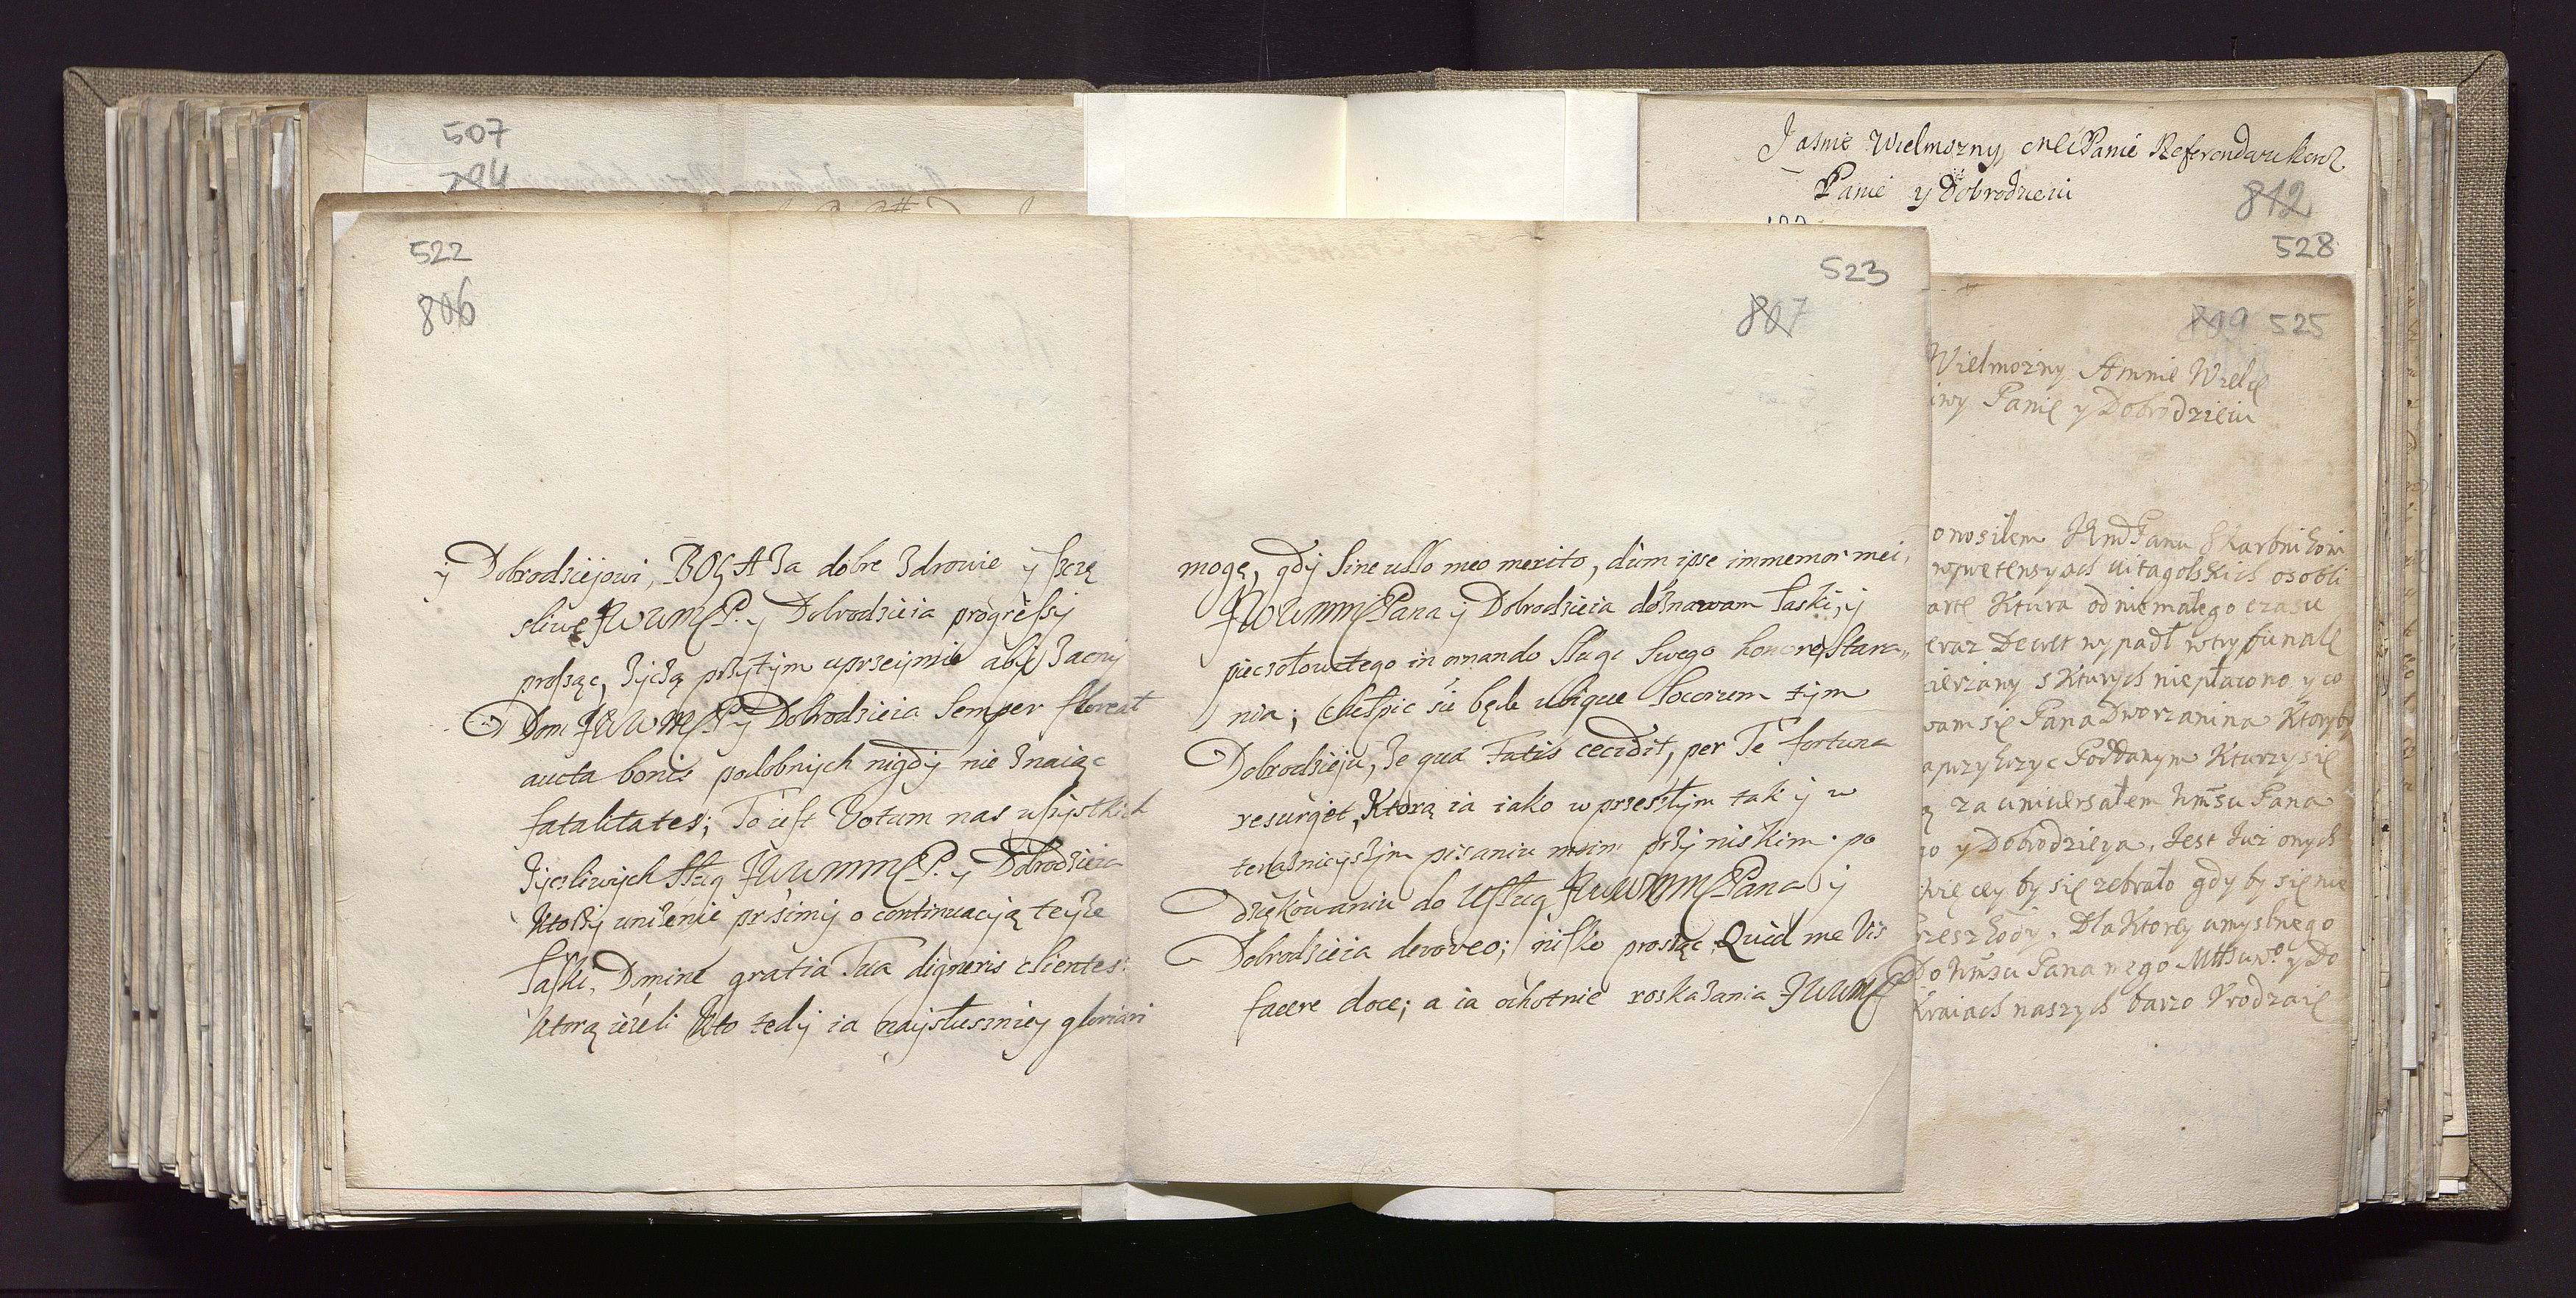 507
794
522
806
y Dobrodziejowi, BOGA za dobre zdrowie y szczę
sliwe JWWMP. y Dobrodzieia progressy
prosząc, życzę przytym uprzeymie aby zacny
Dom JWWMP. y Dobrodzieia semper floreat
aucta bonis podobnych nigdy nie znaiąc
fatalitates; To iest Votum nas wszystkich
życzliwych sług JWWMMP. y Dobrodzieia
ktorzy uniżenie prosimy o continuacyją teyże
łaski. Domine gratia Tua digneris clientes:
ktorą ieżeli kto tedy ia naysłuszniey gloriari
523
807
mogę, gdy sine ullo meo merito, dum ipse immemor mei,
JWWMMPana y Dobrodzieia doznawam łaski, y
pieczołowitego in ornando sługe swego honore stara„
nia; chełpic się będe ubique locorum tym
Dobrodzieju, że qua Fatis cecidit, per Te fortuna
resurget, Ktorą ia iako w przeszłym tak y w
teraznieyszym pisaniu moim przy niskim po
dziękowaniu do usług JWWMMPana y
Dobrodzieia devoveo; nisko prosząc Quid me Vis
facere doce; a ia ochotnie roskazania JWWMP
Jasnie Wielmozny Panie Referendarzu
Panie y Dobrodzieiu
812
528
809 525
Wielmozny Ammie Wielce
iwy Panie y Dobrodzieiu
onosilem Panu Skarbnikowi
wpretensyach witagolskich osobli
arte Ktura od niemałego czasu
eraz Decret wypadł wtrybunale
cierzany s Kturych niepłacono y co
wam się Pana Dworzanina Ktoryby
aprzykrzyc Poddanym Kturzy się
ą za uniwersałem Pana
o y Dobrodzieya, Jest Juz onych
więcey by się zebrało gdy by się nie
rzeszkody. Dla Ktorey umyslnego
Do Pana mego y Do
Kraiach naszych barzo Vrodzaie